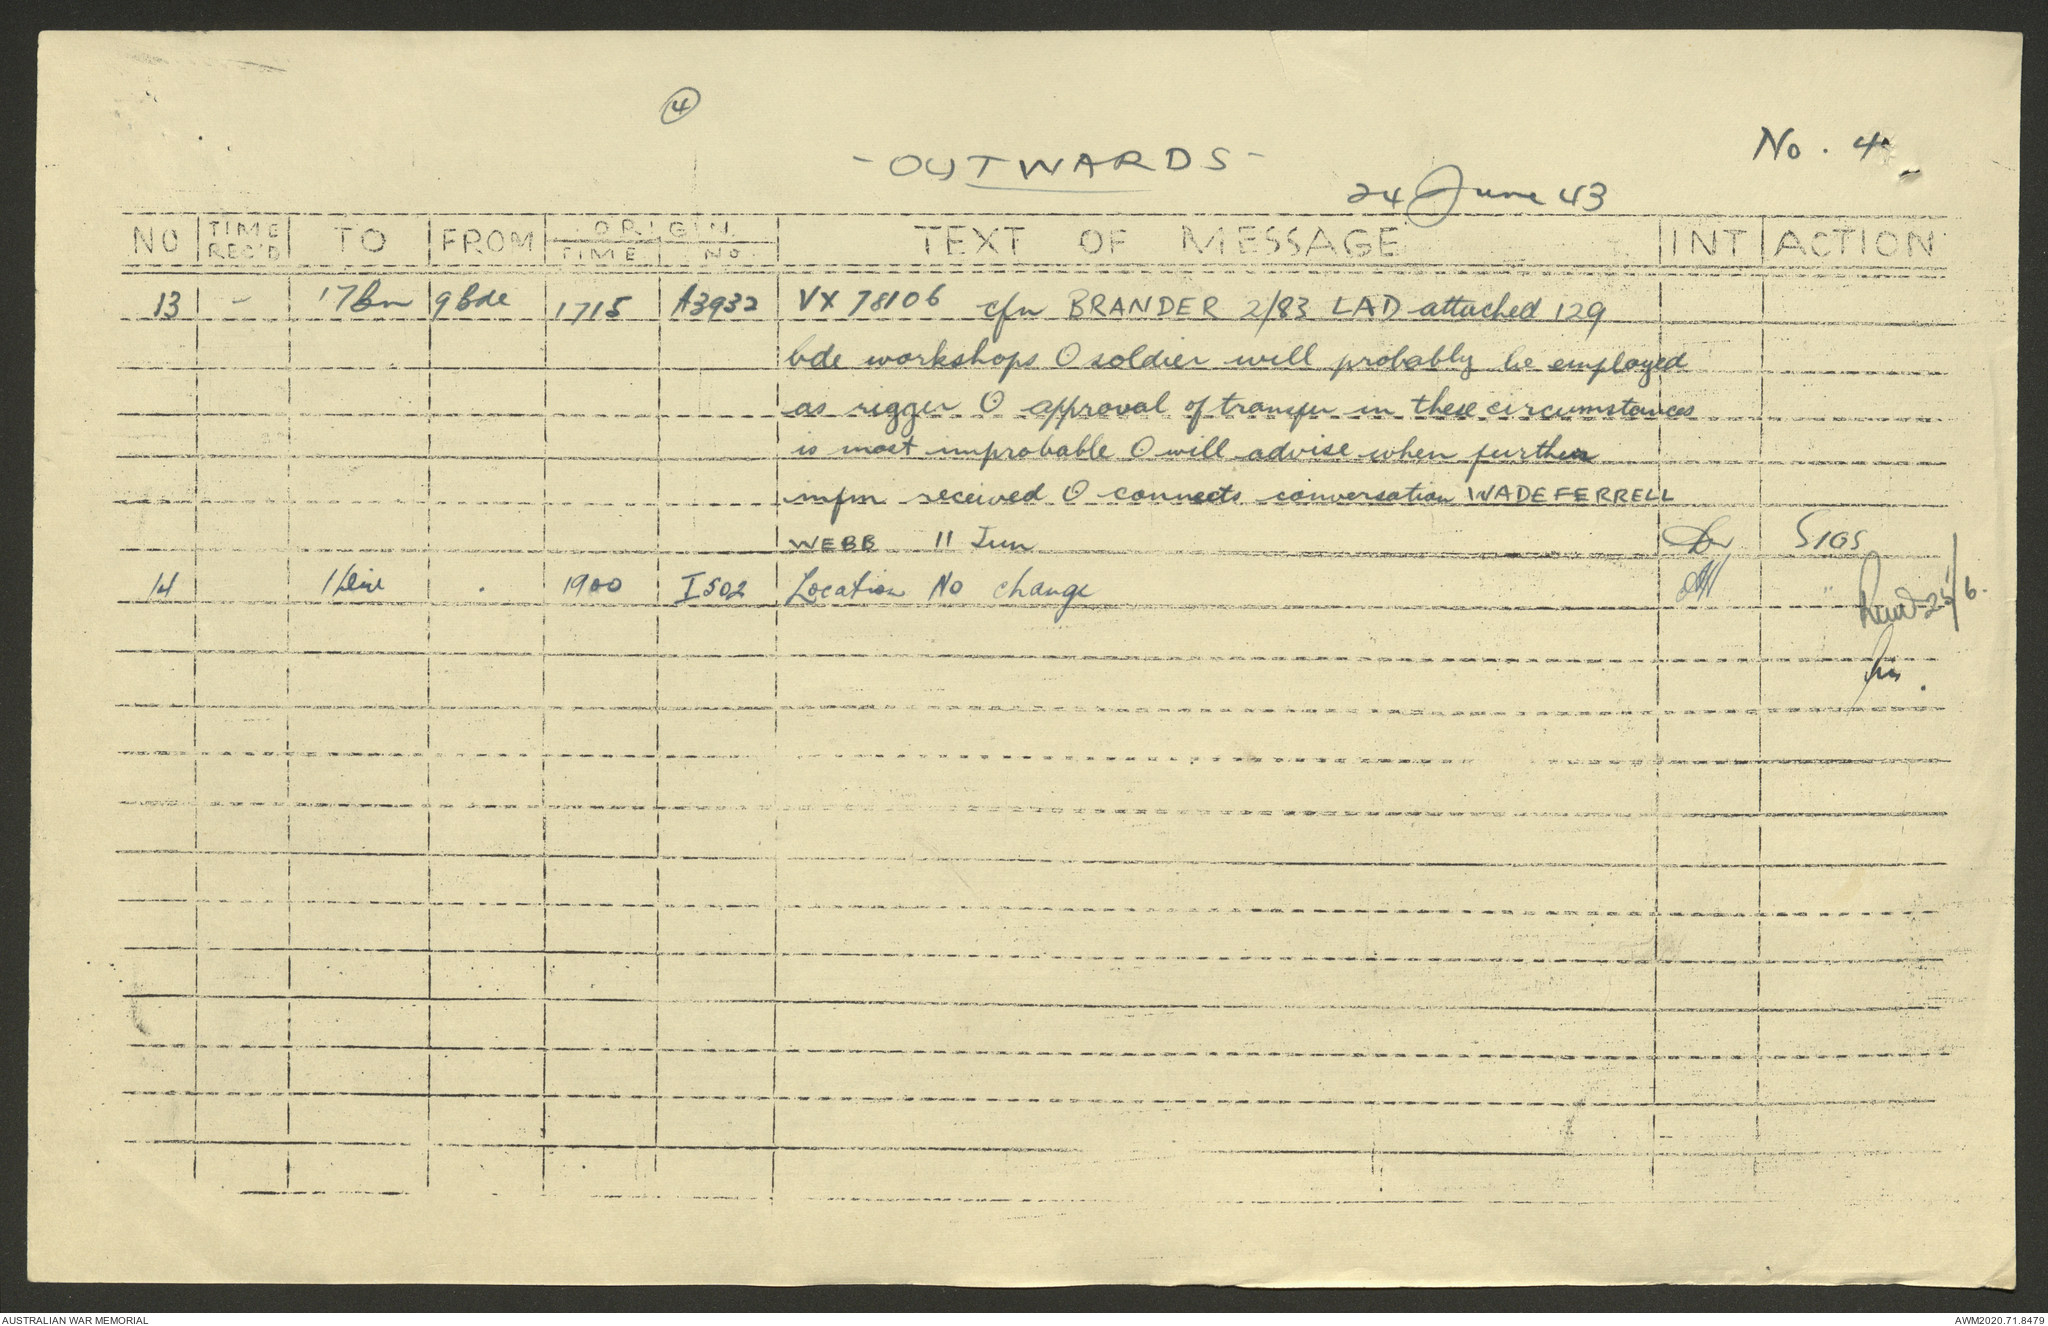 4
No. 4
- OUTWARDS -
24 June 43
NO TIME REC'D TO FROM ORIGIN TIME NO TEXT OF MESSAGE INT ACTION
13 - 17 bn 9 bde 1715 A3932 VX 78106 cfn BRANDER 2/83 LAD attached 129
bde workshops O soldier will probably be employed
as rigger O approval of transfer in these circumstances
is most improbable O will advise when further
infm received O connects conversation WADE FERRELL
WEBB 11 Jun SIGS
14 1 Div . 1900 I502 Location No change "
25/6.
AUSTRALIAN WAR MEMORIAL
AWM2020.71.8479